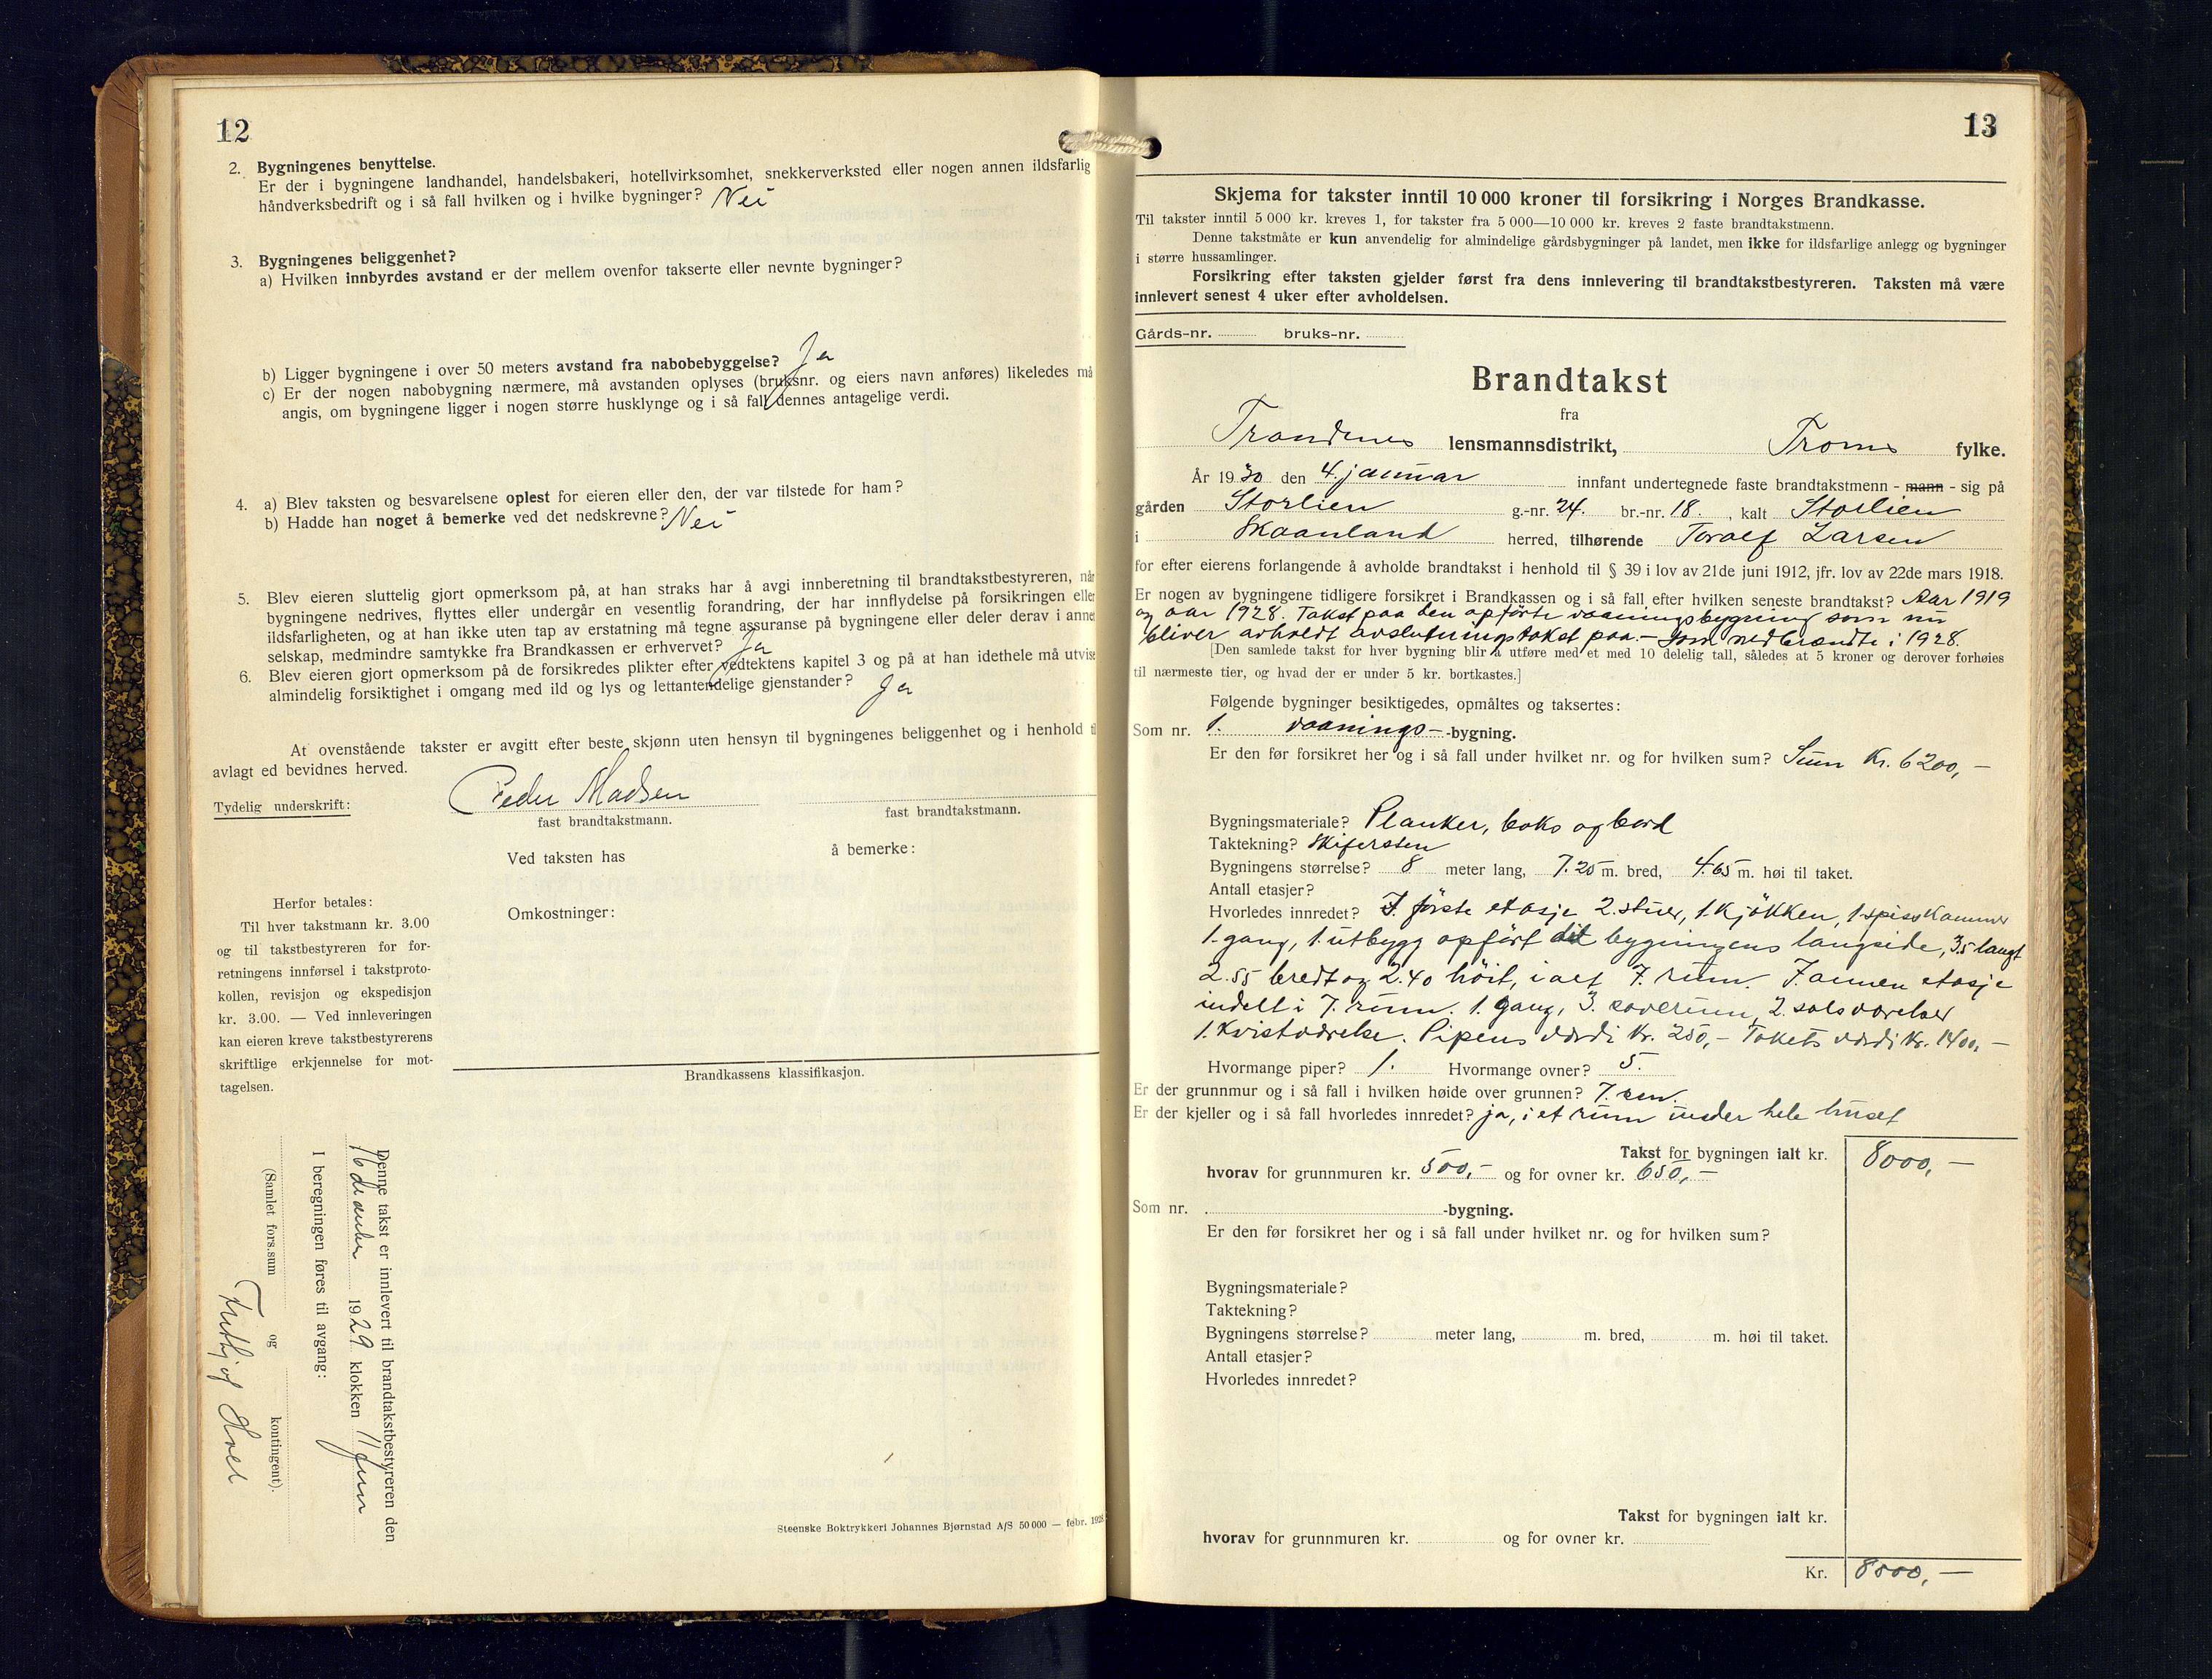 12
2. Bygningenes benyttelse.
Er der i bygningene landhandel, handelsbakeri, hotellvirksomhet, snekkerverksted eller nogen annen ildsfarlig
håndverksbedrift og i så fall hvilken og i hvilke bygninger? Nei
3. Bygningenes beliggenhet?
a) Hvilken innbyrdes avstand er der mellem ovenfor takserte eller nevnte bygninger?
b) Ligger bygningene i over 50 meters avstand fra nabobebyggelse? Ja
c) Er der nogen nabobygning nærmere, må avstanden oplyses (bruksnr. og eiers navn anføres) likeledes må
angis, om bygningene ligger i nogen større husklynge og i så fall dennes antagelige verdi.
4. a) Blev taksten og besvarelsene oplest for eieren eller den, der var tilstede for ham?
b) Hadde han noget å bemerke ved det nedskrevne? Nei
5. Blev eieren sluttelig gjort opmerksom på, at han straks har å avgi innberetning til brandtakstbestyreren, når
bygningene nedrives, flyttes eller undergår en vesentlig forandring, der har innflydelse på forsikringen eller
ildsfarligheten, og at han ikke uten tap av erstatning må tegne assuranse på bygningene eller deler derav i annet
selskap, medmindre samtykke fra Brandkassen er erhvervet? Ja
6. Blev eieren gjort opmerksom på de forsikredes plikter efter vedtektens kapitel 3 og på at han idethele må utvise
almindelig forsiktighet i omgang med ild og lys og lettantendelige gjenstander? Ja
At ovenstående takster er avgitt efter beste skjønn uten hensyn til bygningenes beliggenhet og i henhold til
avlagt ed bevidnes herved.
Tydelig underskrift: Peder Madsen
fast brandtakstmann. fast brandtakstmann.
Ved taksten has å bemerke:
Omkostninger:
Herfor betales:
Til hver takstmann kr. 3.00
og til takstbestyreren for for-
retningens innførsel i takstproto-
kollen, revisjon og ekspedisjon
kr. 3.00. — Ved innleveringen
kan eieren kreve takstbestyrerens
skriftlige erkjennelse for mot-
tagelsen.
Brandkassens klassifikasjon.
Denne takst er innlevert til brandtakstbestyreren den
16 december 1929 klokken 11 fm
I beregningen føres til avgang:
(Samlet fors.sum og kontingent).
Steenske Boktrykkeri Johannes Bjørnstad A/S 50 000 — febr. 1928
13
Skjema for takster inntil 10 000 kroner til forsikring i Norges Brandkasse.
Til takster inntil 5 000 kr. kreves 1, for takster fra 5 000—10 000 kr. kreves 2 faste brandtakstmenn.
Denne takstmåte er kun anvendelig for almindelige gårdsbygninger på landet, men ikke for ildsfarlige anlegg og bygninger
i større hussamlinger.
Forsikring efter taksten gjelder først fra dens innlevering til brandtakstbestyreren. Taksten må være
innlevert senest 4 uker efter avholdelsen.
Gårds-nr. bruks-nr.
Brandtakst
fra
Trondenes lensmannsdistrikt, Troms fylke.
År 1930 den 4. januar innfant undertegnede faste brandtakstmenn - mann - sig på
gården Storlien g.-nr. 24. br.-nr. 18. , kalt Storlien
i Skaanland herred, tilhørende Toralf Larsen
for efter eierens forlangende å avholde brandtakst i henhold til § 39 i lov av 21de juni 1912, jfr. lov av 22de mars 1918.
Er nogen av bygningene tidligere forsikret i Brandkassen og i så fall efter hvilken seneste brandtakst? Aar 1919
og aar 1928. Takst paa den opførte vaaningsbygning som nu
bliver avholdt avslutningstakst paa.- som nedbrændte i 1928.
[Den samlede takst for hver bygning blir å utføre med et med 10 delelig tall, således at 5 kroner og derover forhøies
til nærmeste tier, og hvad der er under 5 kr. bortkastes.]
Følgende bygninger besiktigedes, opmåltes og taksertes:
Som nr. 1. vaanings- -bygning.
Er den før forsikret her og i så fall under hvilket nr. og for hvilken sum? Sum Kr. 6200,-
Bygningsmateriale? Planker, boks og bord
Taktekning? Skifersten
Bygningens størrelse? 8 meter lang, 7.25 m. bred, 4.65 m. høi til taket.
Antall etasjer?
Hvorledes innredet? I første etasje 2. stuer, 1. kjökken, 1 spiskammer
1. gang, 1. utbygg opfört bygningens langside, 3.5 langt
2.55 bredt og 2.40 höit, i alt 7. rum. I annen etasje
indelt i 7. rum. 1. gang, 3. soverum, 2. salsværelser
1. kvistværelse. Pipens værdi kr. 250,- Takets værdi kr. 1400,-
Hvormange piper? 1. Hvormange ovner? 5.
Er der grunnmur og i så fall i hvilken høide over grunnen? 7. cm.
Er der kjeller og i så fall hvorledes innredet? ja, i et rum under hele huset
Takst for bygningen ialt kr. 8000,-
hvorav for grunnmuren kr. 500,- og for ovner kr. 650,-
Som nr. -bygning.
Er den før forsikret her og i så fall under hvilket nr. og for hvilken sum?
Bygningsmateriale?
Taktekning?
Bygningens størrelse? meter lang, m. bred, m. høi til taket.
Antall etasjer?
Hvorledes innredet?
Takst for bygningen ialt kr.
hvorav for grunnmuren kr. og for ovner kr.
Kr. 8000,-